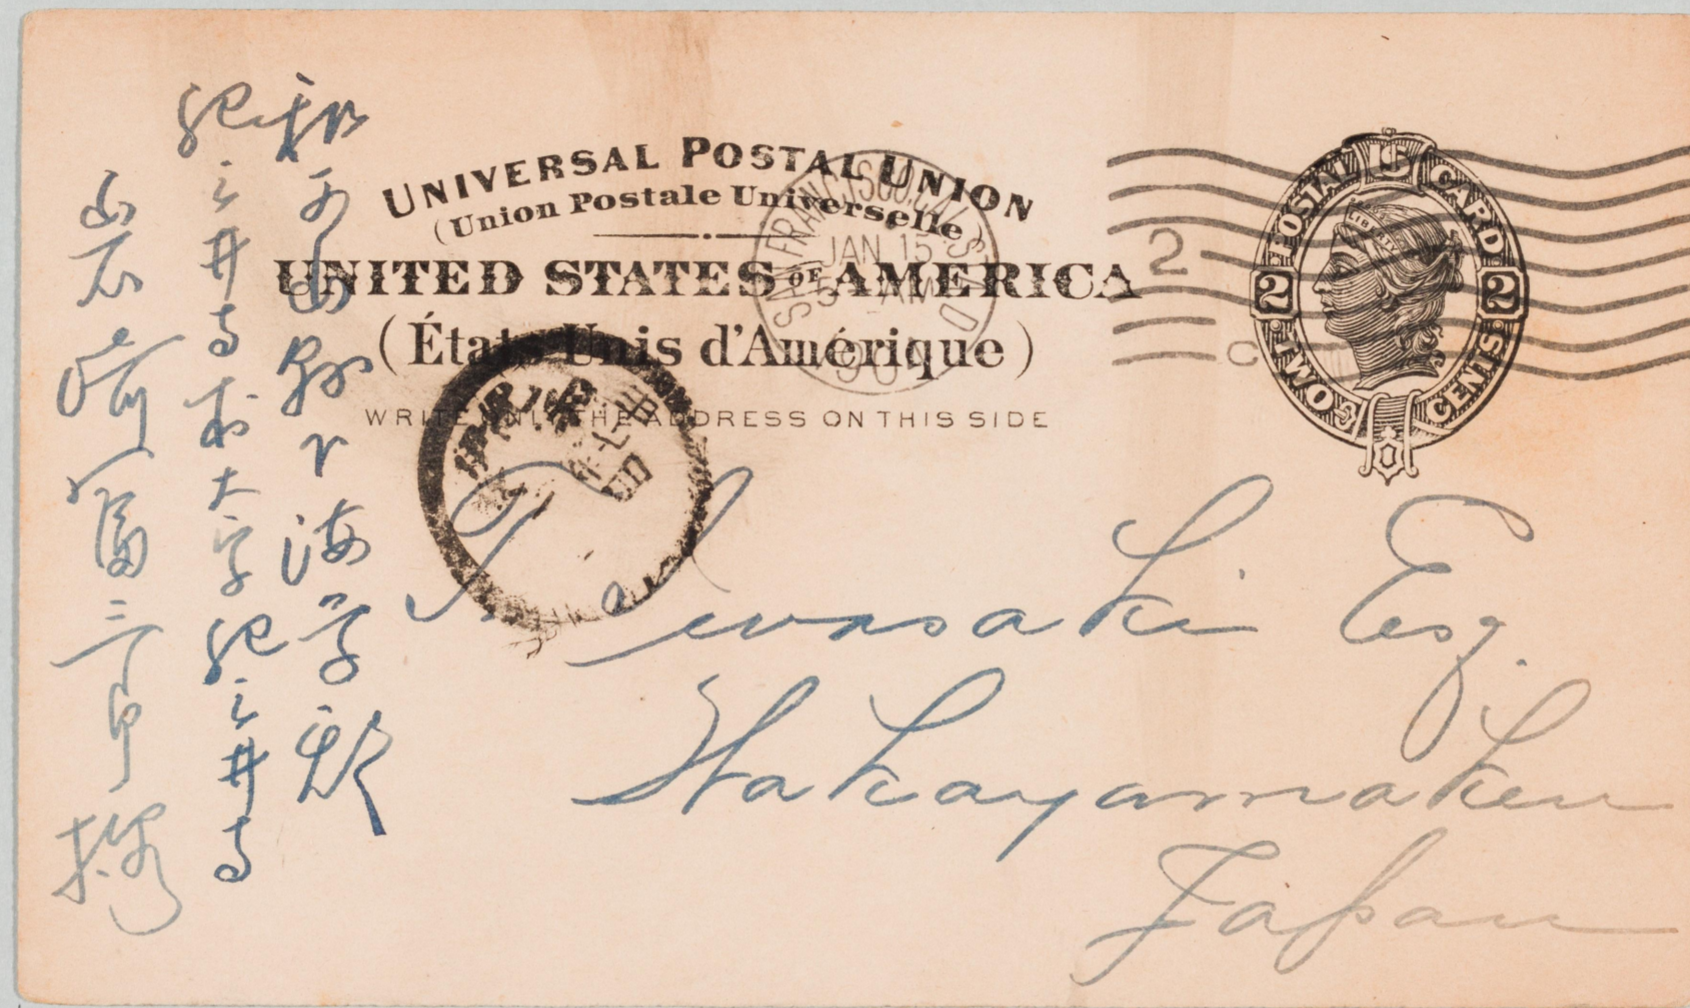 UNIVERSAL POSTAL UNION
(Union Postale Universelle)
UNITED STATES OF AMERICA
(États Unis d'Amérique)
WRITE ONLY THE ADDRESS ON THIS SIDE
SAN FRANCISCO, CAL. STA. D
JAN 15
5 - AM
190
2 C
POSTAL CARD
U S
2 2
TWO CENTS
LIBERTY
T. Iwasaki Esq.
Wakayamaken
Japan
和歌山縣下海草郡
紀三井寺村大字紀三井寺
岩崎富三郎様